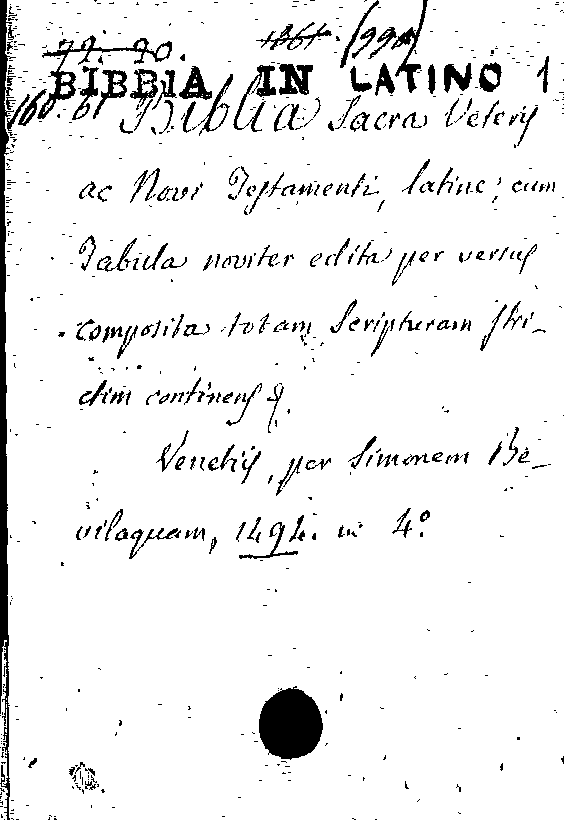 79. 90. 1861. (990)
BIBBIA IN LATINO 1
160. 61 Biblia Sacra Veteris
ac Novi Testamenti, latine, cum
Tabula noviter edita per versus
composita totam Scripturam stri-
ctim continens &.
Venetiis, per Simonem Be-
vilaquam, 1494. in 4°